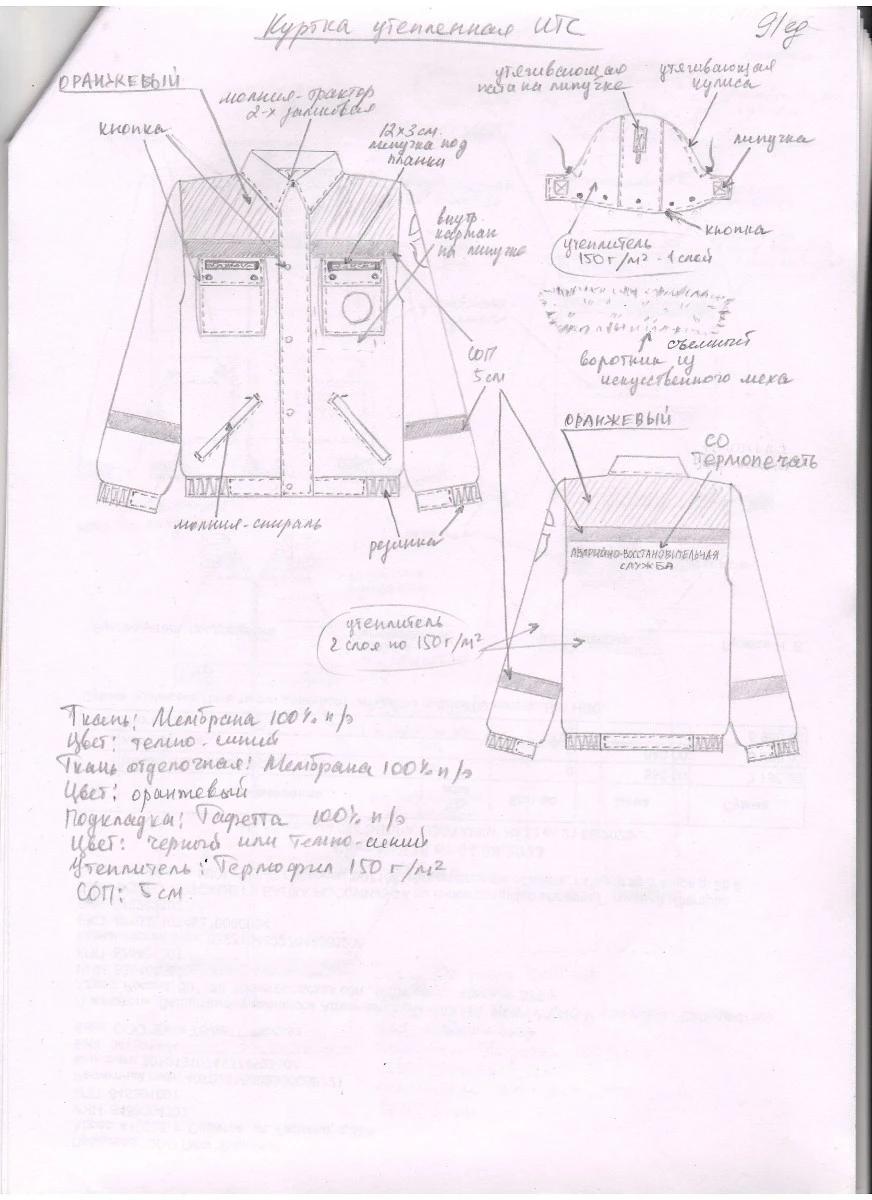 Куртка утепленная ИТС
ОРАНЖЕВЫЙ
молния-трактор
2-х замковая
кнопка
12х3см.
липучка под
планки
внутр.
карман
на липучке
утягивающая
пата на липучке
утягивающая
кулиса
липучка
кнопка
утеплитель
150 г/м² - 1 слой
съемный
воротник из
искусственного меха
СОП
5 см
молния-спираль
резинка
ОРАНЖЕВЫЙ
СО
Термопечать
АВАРИЙНО-ВОССТАНОВИТЕЛЬНАЯ
СЛУЖБА
утеплитель
2 слоя по 150 г/м²
Ткань: Мембрана 100% п/э
Цвет: темно-синий
Ткань отделочная: Мембрана 100% п/э
Цвет: оранжевый
Подкладка: Таффета 100% п/э
Цвет: черный или темно-синий
Утеплитель: Термофил 150 г/м²
СОП: 5 см.